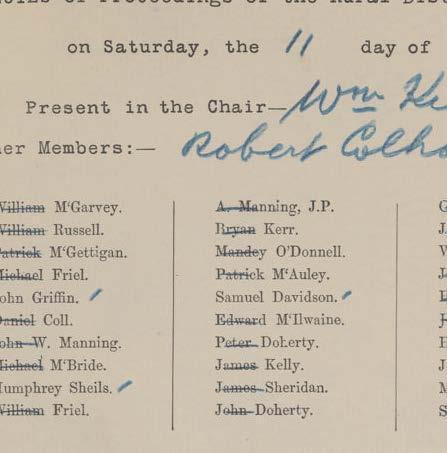 of Proceedings of the Rural
on Saturday, the 11 day of
Present in the Chair— Wm
Members:— Robert
William M'Garvey.
William Russell.
Patrick M'Gettigan.
Michael Friel.
John Griffin.
Daniel Coll.
John W. Manning.
Michael M'Bride.
Humphrey Sheils.
William Friel.
A. Manning, J.P.
Bryan Kerr.
Mandey O'Donnell.
Patrick M'Auley.
Samuel Davidson.
Edward M'Ilwaine.
Peter Doherty.
James Kelly.
James Sheridan.
John Doherty.